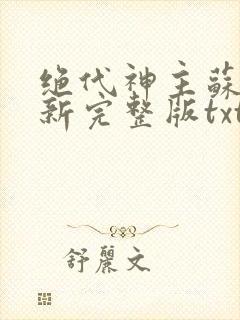 绝代神主蘇
新完整版txt
舒麗文